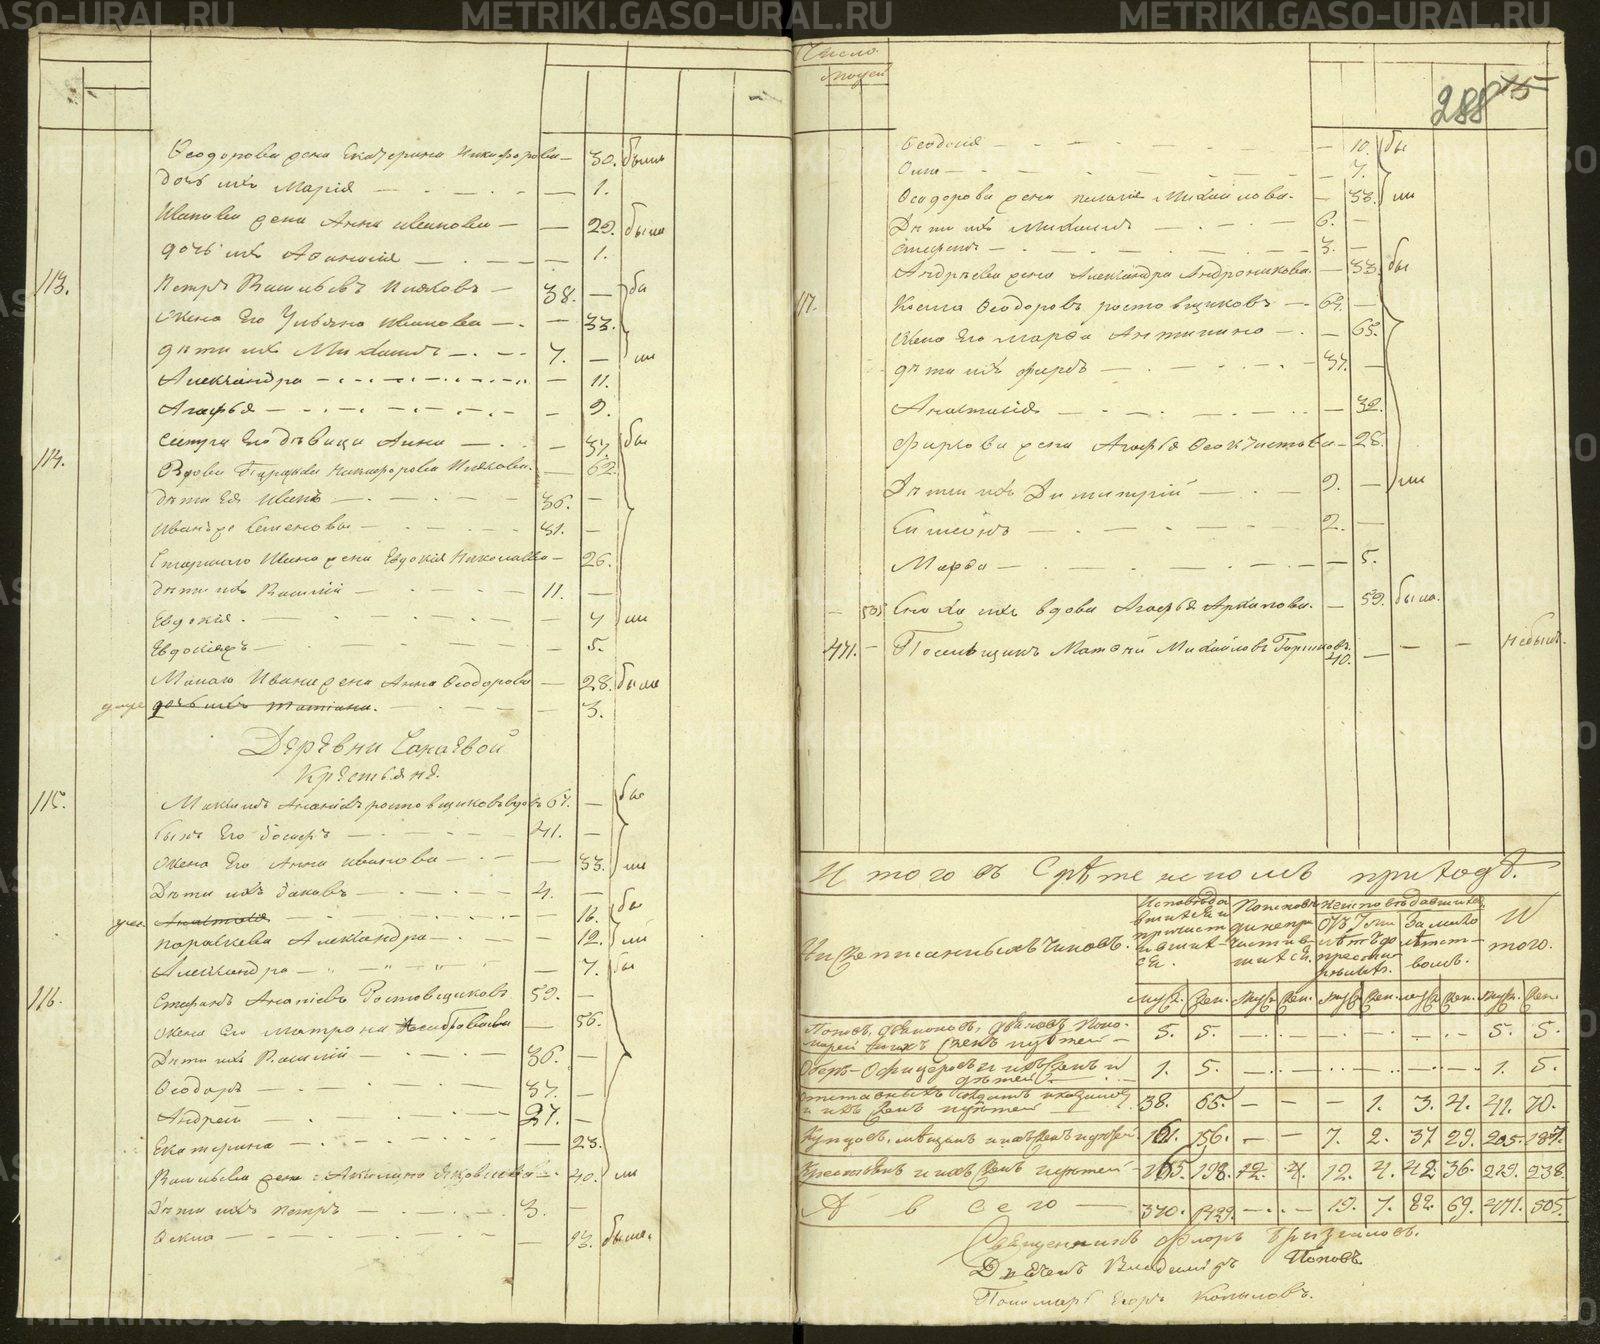 Ѳеодорова жена Екатерина Никифорова — 30. были
дочь ихъ Марія — 1.
Иванова жена Анна Иванова — 29. были
дочь ихъ Аѳанасія — 1.
113. Петръ Васильевъ — 38. — бы
Жена Его Ульяна Иванова — 33.
дѣти ихъ Михаилъ — 7. — ли
Александра — 11.
Агафья — 9.
сестра Его дѣвица Анна — 37. бы
114. Вдова Никифорова — 62.
дѣти Ея Иванъ — 36. —
Иванъ же Семеновы — 31. —
Старшаго Ивана жена Евдокія Николаева — 26.
дѣти ихъ Василій — 11. —
Евдокія. — 7 ли
— 5.
Малаго Ивана жена Анна Ѳеодорова — 28. была
дочь ихъ Татіана. — 3.
Деревни
Крестьяне.
115. Максимъ Ананьевъ Ростовщиковъ вдовъ 67. — бы
сынъ Его Іосифъ — 41. —
Жена Его Анна Иванова — 33. ли
Дѣти ихъ Іаковъ — 4. —
Анастасія — 16. бы
Параскева Александра — 12. ли
Александра — 7. бы
116. Стефанъ Ананіевъ Ростовщиковъ 59. —
Жена Его Матрона — 56.
Дѣти ихъ Василій — 36. —
Ѳеодоръ — 37. —
Андрей — 27. —
Екатерина — 23.
Васильева жена Акилина Яковлева — 40. ли
Дѣти ихъ Петръ — 3. —
Ѳекла — 13. была.
Число
людей
288 15
Ѳеодосія — 10. бы
Анна — 7.
Ѳеодорова жена Пелагія Михайлова. — 33. ли
Дѣти ихъ Михаилъ — 6. —
Стефанъ — 3. —
Андреева жена Александра Андроникова. — 33. бы
117. Косма Ѳеодоровъ Ростовщиковъ — 64. —
Жена Его Марѳа Антипина — 65.
дѣти ихъ Фирсъ — 37. —
Анастасія — 32.
Фирсова жена Агафья Ѳеоктистова — 28.
Дѣти ихъ Димитрій — 9. — ли
Симеонъ — 2. —
Марѳа — 5.
— 505 Сноха ихъ вдова Агафья Архипова. — 59. была.
471. — Поселыцикъ Матѳей Михайловъ 40. — — — Небылъ.
Итого въ Срѣтенскомъ приходѣ.
Нижеписанныхъ чиновъ.
Исповѣдавшихся и причастившихся.
Исповѣдавшихся и не причастившихся.
Неисповѣдавшихся
Отъ 7ми лѣтъ до престарѣлыхъ.
За малолѣтствомъ.
Итого.
муж. жен. муж. жен. муж. жен. муж. жен. муж. жен.
Поповъ, дьяконовъ, дьячковъ, пономарей и ихъ женъ и дѣтей — 5. 5. — — — — — — 5. 5.
Оберъ-Офицеровъ и ихъ женъ и дѣтей. — 1. 5. — — — — — — 1. 5.
Отставныхъ солдатъ и казаковъ и ихъ женъ и дѣтей — 38. 65. — — — 1. 3. 4. 41. 70.
Купцовъ, мѣщанъ и ихъ женъ и дѣтей. 161. 156. — — 7. 2. 37 29. 205. 187.
Крестьянъ и ихъ женъ и дѣтей 165. 198. — 4. 12. 4. 42. 36. 219. 238.
А всего — 370. 429. — — 19. 7. 82. 69. 471. 505.
Священникъ Флоръ
Дьячекъ Владиміръ Поповъ.
Пономарь Егоръ Копыловъ.
METRIKI.GASO-URAL.RU